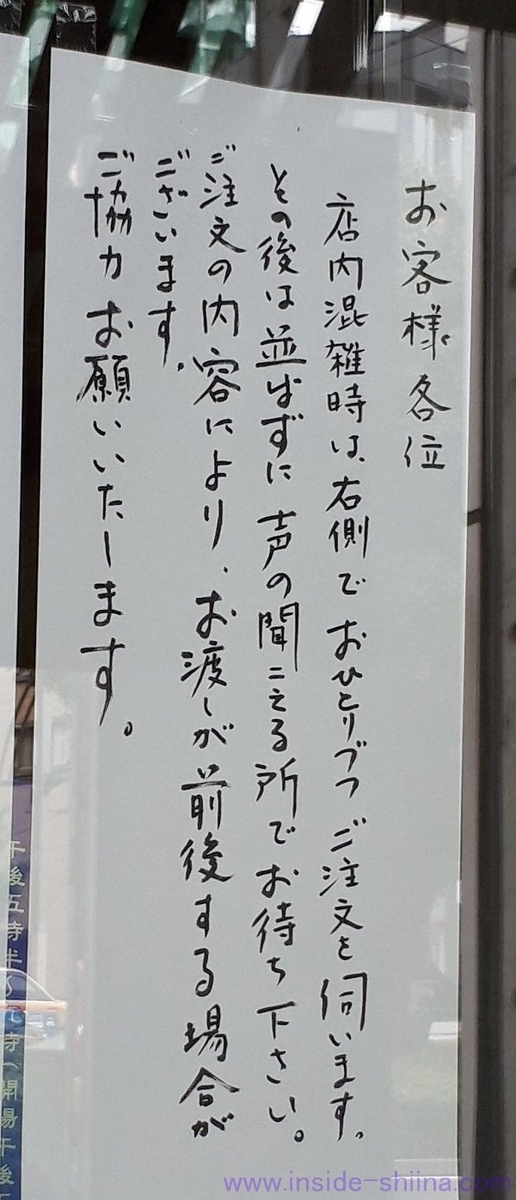 お客様各位
店内混雑時は、右側でおひとりづつご注文を伺います。
その後は並ばずに声の聞こえる所でお待ち下さい。
ご注文の内容により、お渡しが前後する場合が
ございます。
ご協力お願いいたします。
午後五時半
開場午後
www.inside-shiina.com